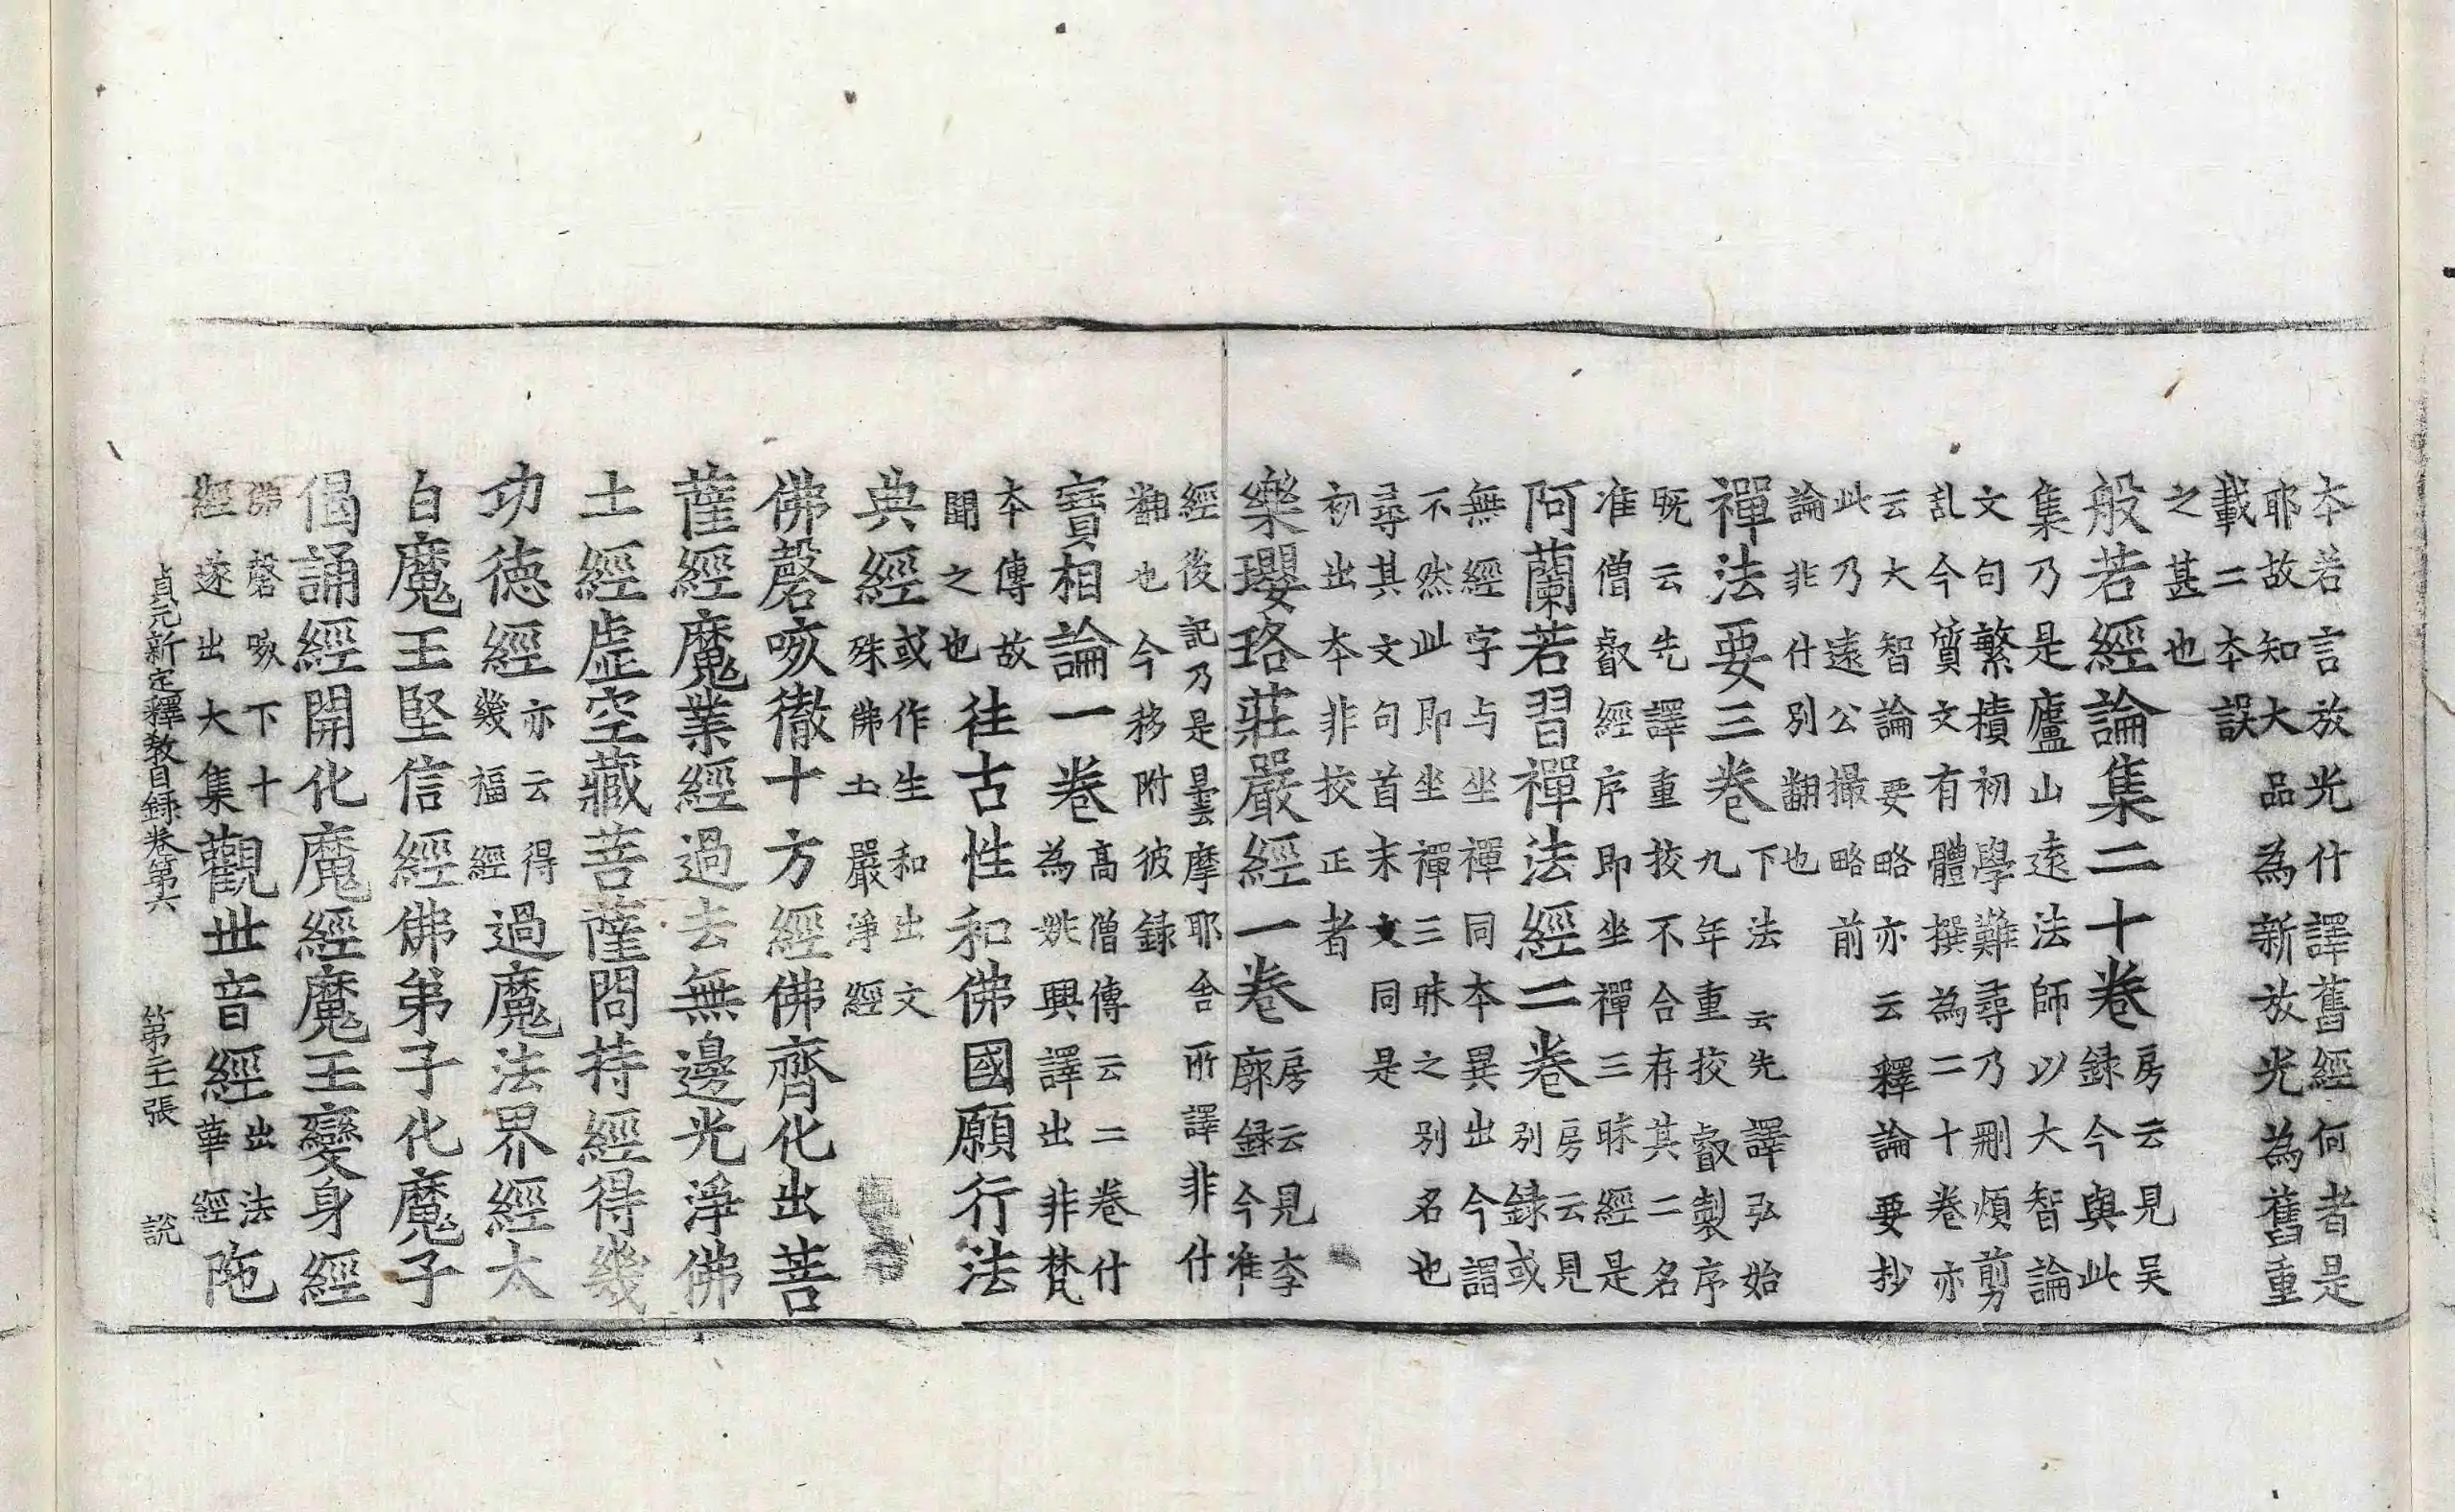 本若言放光什譯舊經何者是
耶故知大品為新放光為舊重
載二本誤
之甚也
般若經論集二十卷
房云見吴
録今與此
集乃是廬山遠法師以大智論
文句繁積初學難尋乃刪煩剪
乱今質文有體撰為二十卷亦
云大智論要略亦云釋論要抄
此乃遠公撮略前
論非什別翻也
禪法要三卷
下法云先譯弘始
九年重挍叡製序
既云先譯重挍不合存其二名
准僧叡經序即坐禪三昧經是
阿蘭若習禪法經二卷
房云見
別録或
無經字与坐禪同本異出今謂
不然此即坐禪三昧之別名也
尋其文句首末文同是
初出本非挍正者
樂瓔珞莊嚴經一卷
房云見李
廓録今准
經後記乃是曇摩耶舍所譯非什
翻也今移附彼録
寶相論一卷
高僧傳云二卷什
為姚興譯出非梵
本傳故
聞之也
往古性和佛國願行法
典經
或作生和出文
殊佛土嚴淨經
佛磬咳徹十方經佛齊化出菩
薩經魔業經過去無邊光淨佛
土經虛空藏菩薩問持經得幾
功德經
亦云得
幾福經
過魔法界經太
白魔王堅信經佛弟子化魔子
偈誦經開化魔經魔王變身經
佛磬咳下十
經遂出大集
觀世音經
出法
華經
陁
貞元新定釋教目録卷第六 第二十張 說